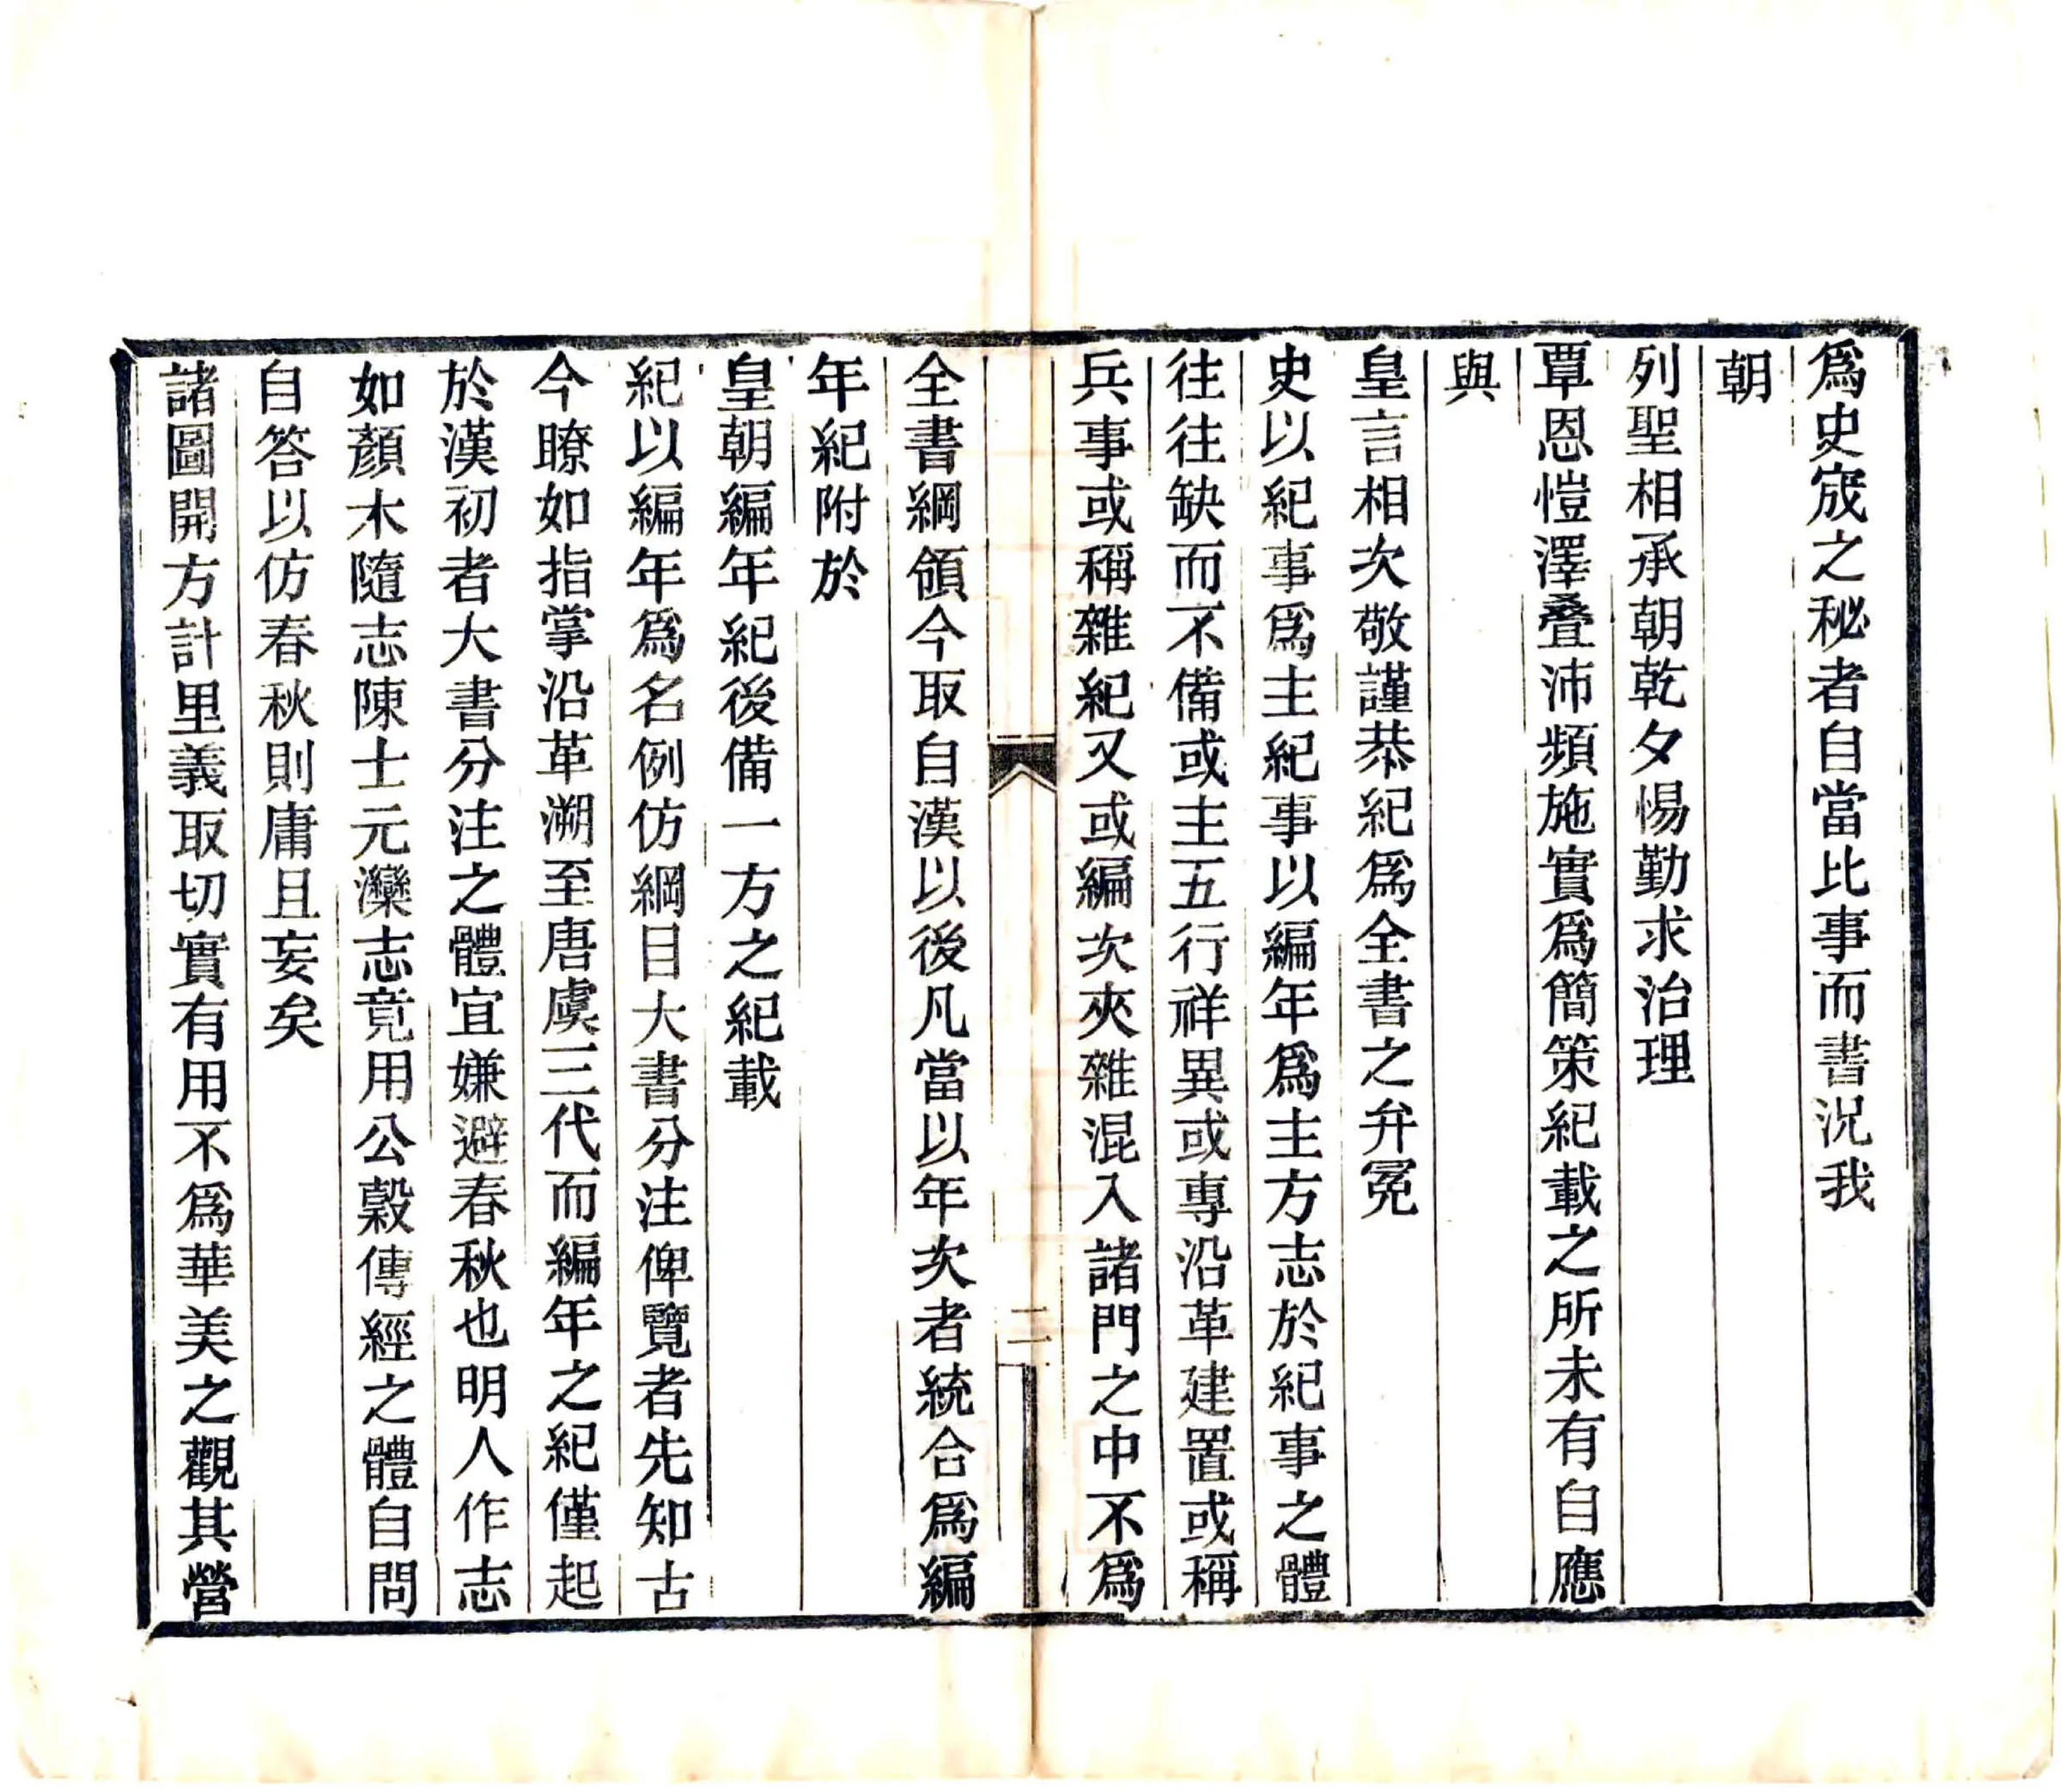 爲史宬之秘者自當比事而書況我
朝
列聖相承朝乾夕惕勤求治理
覃恩愷澤疊沛頻施實爲簡策紀載之所未有自應
與
皇言相次敬謹恭紀爲全書之弁冕
史以紀事爲主紀事以編年爲主方志於紀事之體
往往缺而不備或主五行祥異或專沿革建置或稱
兵事或稱雜紀又或編次夾雜混入諸門之中不爲
二
全書綱領今取自漢以後凡當以年次者統合爲編
年紀附於
皇朝編年紀後備一方之紀載
紀以編年爲名例仿綱目大書分注俾覽者先知古
今瞭如指掌沿革溯至唐虞三代而編年之紀僅起
於漢初者大書分注之體宜嫌避春秋也明人作志
如顏木隨志陳士元灤志竟用公穀傳經之體自問
自答以仿春秋則庸且妄矣
諸圖開方計里義取切實有用不爲華美之觀其營